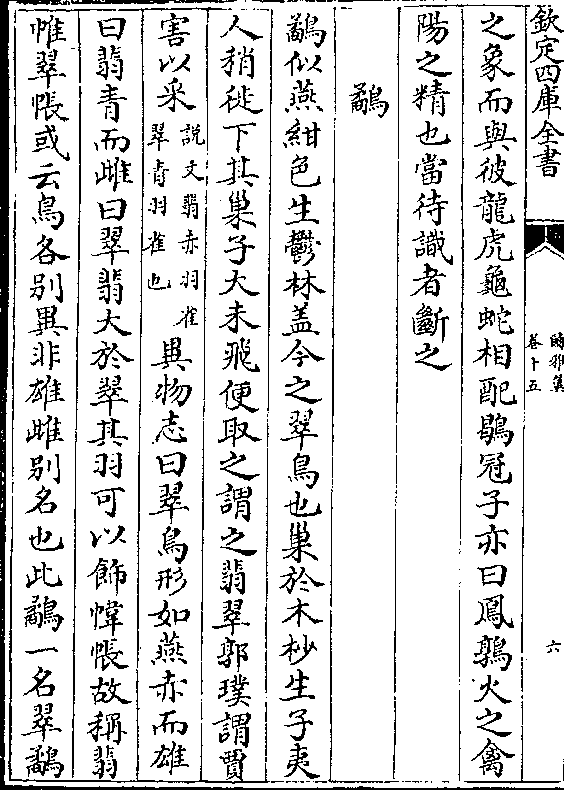 欽定四庫全書
爾雅翼
卷十五
六
之象而與彼龍虎龜蛇相配鶡冠子亦曰鳳鶉火之禽
陽之精也當待識者斷之
鷸
鷸似燕紺色生鬱林盖今之翠鳥也巢於木杪生子夷
人稍徙下其巢子大未飛便取之謂之翡翠郭璞謂賈
害以采說文翡赤羽雀翠青羽雀也異物志曰翠鳥形如燕赤而雄
曰翡青而雌曰翠翡大於翠其羽可以飾幃帳故稱翡
帷翠帳或云鳥各别異非雄雌别名也此鷸一名翠鷸